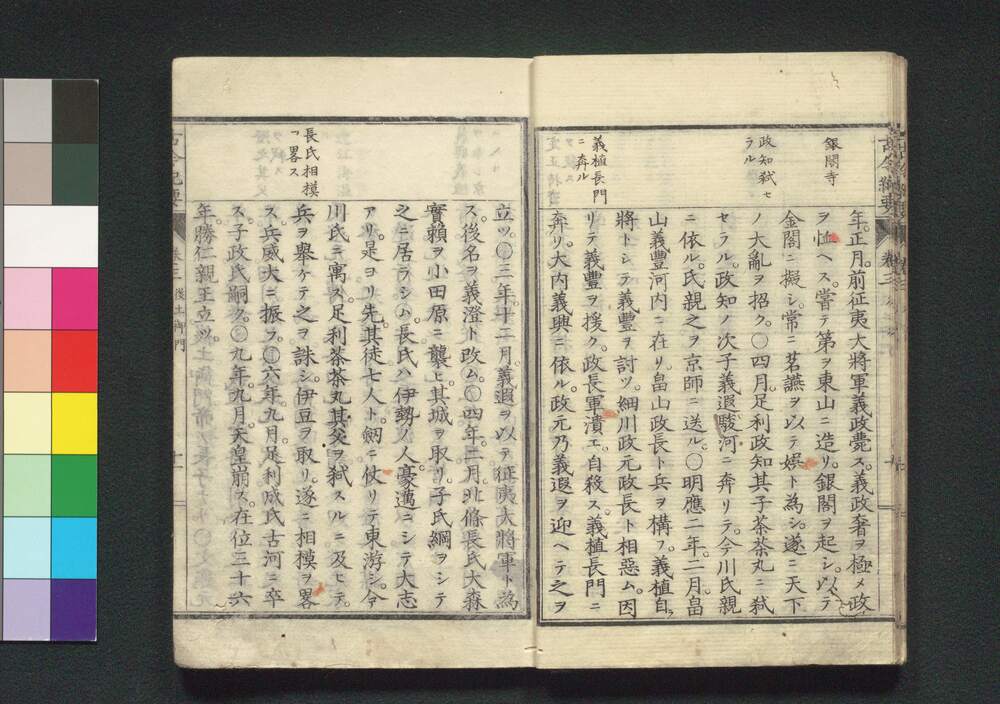 銀閣寺
政知弑セ
ラル
義植長門
ニ奔ル
年。正月前征夷大將軍義政薨ス。義政奢ヲ極メ政
ヲ恤ヘス。嘗テ第ヲ東山ニ造リ。銀閣ヲ起シ。以テ
金閣ニ擬シ。常ニ茗讌ヲ以テ娯ト為シ。遂ニ天下
ノ大亂ヲ招ク。〇四月。足利政知其子茶茶丸ニ弑
セラル。政知ノ次子義遐駿河ニ奔リテ。今川氏親
ニ依ル。氏親之ヲ京師ニ送ル。〇明應二年。二月。畠
山義豐河内ニ在リ。畠山政長ト兵ヲ構フ。義植自
將トシテ義豐ヲ討ツ。細川政元政長ト相惡ム。因
リテ義豐ヲ援ク。政長軍潰エ。自殺ス。義植長門ニ
奔リ。大内義興ニ依ル。政元乃義遐ヲ迎ヘテ之ヲ
長氏相摸
ヲ畧ス
立ツ。〇三年。十二月。義遐ヲ以テ征夷大將軍ト為
ス。後名ヲ義澄ト改ム。〇四年。二月。北條長氏大森
實賴ヲ小田原ニ襲ヒ。其城ヲ取リ。子氏綱ヲシテ
之ニ居ラシム。長氏ハ伊勢ノ人。豪邁ニシテ大志
アリ。是ヨリ先。其徒七人ト。劒ニ仗リテ東游シ。今
川氏ニ寓ス。足利茶茶丸其父ヲ弑スルニ及ヒテ。
兵ヲ舉ケテ之ヲ誅シ。伊豆ヲ取リ。遂ニ相摸ヲ畧
ス。兵威大ニ振フ。〇六年。九月。足利成氏古河ニ卒
ス。子政氏嗣ク。〇九年。九月。天皇崩ス。在位三十六
年。勝仁親王立ツ。
卷三
後土御門
十一